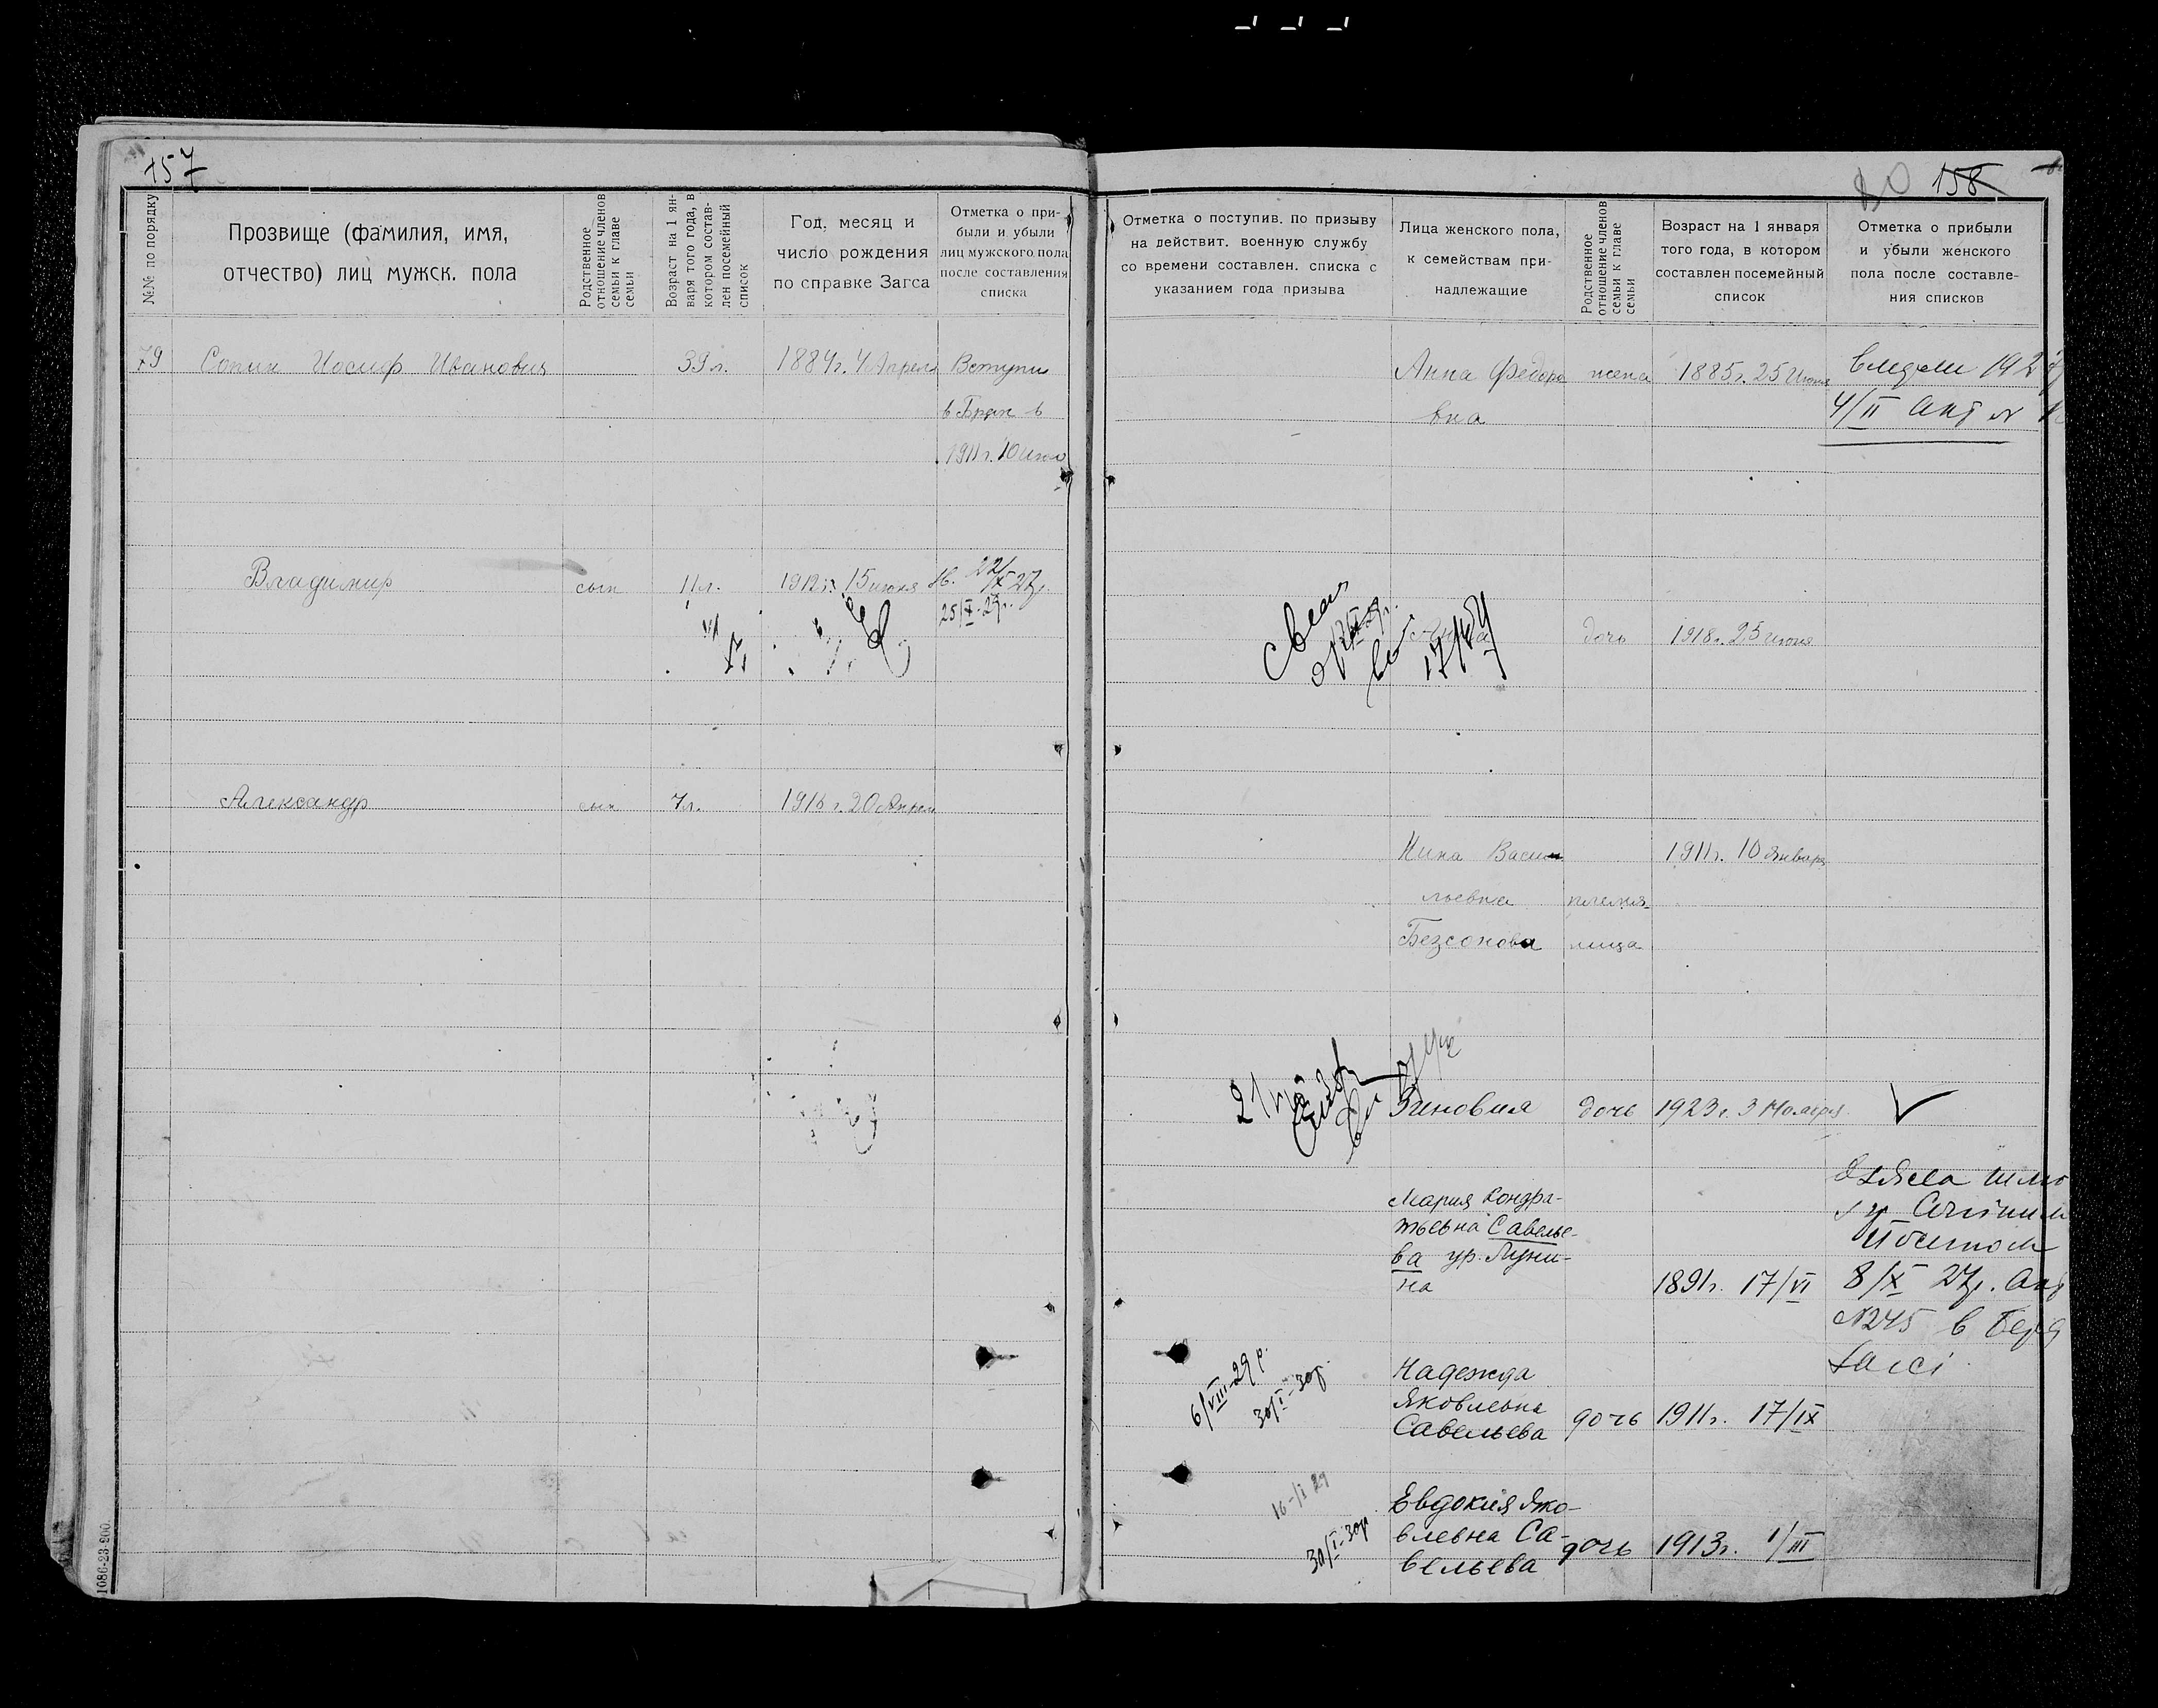 157
№№ по порядку
Прозвище (фамилия, имя,
отчество) лиц мужск. пола
Родственное
отношение членов
семьи к главе
семьи
Возраст на 1 ян-
варя того года, в
котором состав-
лен посемейный
список
Год, месяц и
число рождения
по справке Загса
Отметка о при-
были и убыли
лиц мужского пола
после составления
списка
79 Сопин Иосиф Иванович 39 л. 1884 г. 4 Апреля Вступил
в Брак в
1911 г. 10 июл
Владимир сын 11 л. 1912 г. 15 июня
25/X-29г.
Александр сын 7 л. 1916 г. 20 Апреля
1086-23-900.
158
Отметка о поступив. по призыву
на действит. военную службу
со времени составлен. списка с
указанием года призыва
Лица женского пола,
к семействам при-
надлежащие
Родственное
отношение членов
семьи к главе
семьи
Возраст на 1 января
того года, в котором
составлен посемейный
список
Отметка о прибыли
и убыли женского
пола после составле-
ния списков
Анна Федоро жена 1885 г. 25 Июня
вна 4/II акт №
дочь 1918 г. 25 июня
Нина Васи 1911 г. 10 Января
льевна племя-
Безсонова ница
Зиновия дочь 1923 г. 3 Ноября
Мария Кондра-
тьевна Савелье-
ва ур. Луни-
на 1891 г. 17/VI 8/X 27г. акт
№245 в
6/VIII-29 р.
30/I-30р.
Надежда
Яковлевна
Савельева дочь 1911 г. 17/IX
30/I-30р.
Евдокия Яко-
влевна Са-
вельева дочь 1913 г. 1/III